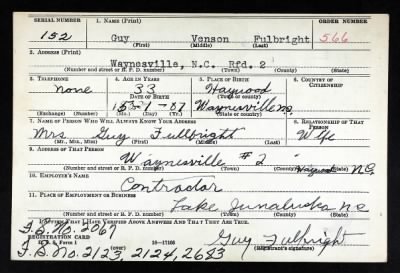 SERIAL NUMBER 1. NAME (Print) ORDER NUMBER
152 Guy Vonson Fulbright 566
(First) (Middle) (Last)
2. ADDRESS (Print)
Waynesville, N.C. Rfd. 2
(Number and street or R. F. D. number) (Town) (County) (State)
3. TELEPHONE 4. AGE IN YEARS 5. PLACE OF BIRTH 6. COUNTRY OF CITIZENSHIP
none 33 Haywood
DATE OF BIRTH (Town or county)
1-07 Waynesville N.C.
(Exchange) (Number) (Mo.) (Day) (Yr.) (State or country)
7. NAME OF PERSON WHO WILL ALWAYS KNOW YOUR ADDRESS 8. RELATIONSHIP OF THAT PERSON
Mrs. Guy Fullbright Wife
(Mr., Mrs., Miss) (First) (Middle) (Last)
9. ADDRESS OF THAT PERSON
Waynesville #2 N.C.
(Number and street or R. F. D. number) (Town) (County) (State)
10. EMPLOYER'S NAME
Contractor
11. PLACE OF EMPLOYMENT OR BUSINESS
Lake Junaluska N.C.
(Number and street or R. F. D. number) (Town) (County) (State)
I AFFIRM THAT I HAVE VERIFIED ABOVE ANSWERS AND THAT THEY ARE TRUE.
No. 2067
REGISTRATION CARD
D. S. S. Form 1 (over) 16-17105 Guy Fulbright
No. 2123, 2124, 2683 (Registrant's signature)